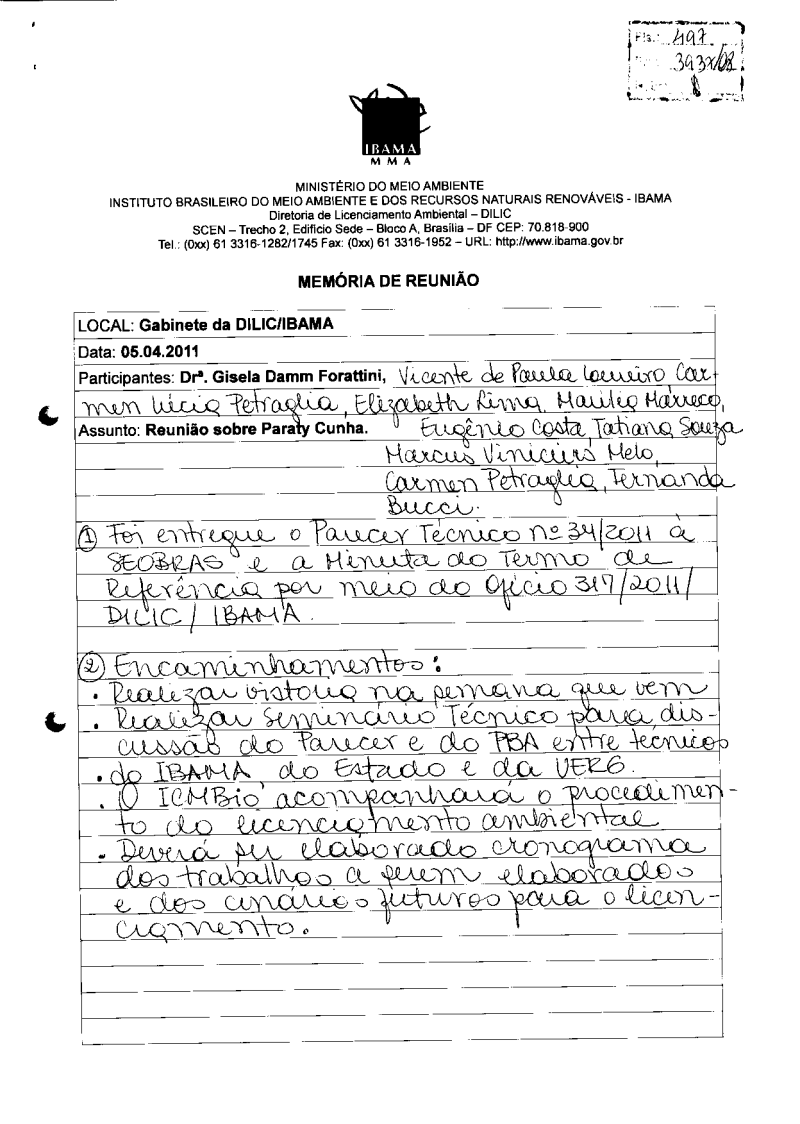 Fls.: 497
3937/08
IBAMA
M M A
MINISTÉRIO DO MEIO AMBIENTE
INSTITUTO BRASILEIRO DO MEIO AMBIENTE E DOS RECURSOS NATURAIS RENOVÁVEIS - IBAMA
Diretoria de Licenciamento Ambiental – DILIC
SCEN – Trecho 2, Edifício Sede – Bloco A, Brasília – DF CEP: 70.818-900
Tel.: (0xx) 61 3316-1282/1745 Fax: (0xx) 61 3316-1952 – URL: http://www.ibama.gov.br
MEMÓRIA DE REUNIÃO
LOCAL: Gabinete da DILIC/IBAMA
Data: 05.04.2011
Participantes: Drª. Gisela Damm Forattini, Vicente de Paula Loureiro, Car-
men Lúcia Petraglia, Elizabeth Lima, Marilia Marreco,
Assunto: Reunião sobre Paraty Cunha. Eugênio Costa, Tatiana Souza
Marcus Vinicius Melo,
Carmen Petraglia, Fernanda
Bucci.
① Foi entregue o Parecer Técnico nº 34/2011 à
SEOBRAS e a Minuta do Termo de
Referência por meio do Ofício 317/2011/
DILIC/IBAMA.
② Encaminhamentos:
• Realizar vistoria na semana que vem
• Realizar Seminário Técnico para dis-
cussão do Parecer e do PBA entre técnicos
• do IBAMA, do Estado e da
• O ICMBio acompanhará o procedimen-
to do licenciamento ambiental
• Deverá ser elaborado cronograma
dos trabalhos a serem elaborados
e dos cenários futuros para o licen-
ciamento.